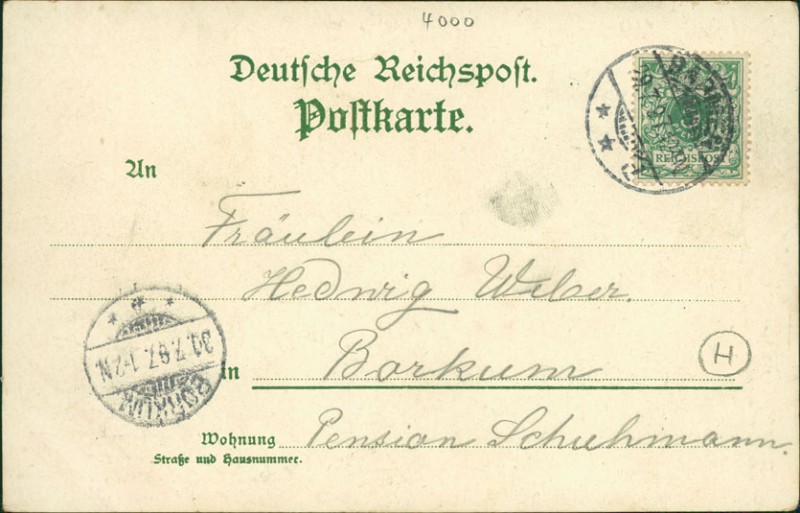 4000
Deutsche Reichspost.
Postkarte.
REICHSPOST
An
Fräulein
Hedwig Weber.
H
in Borkum
30.7.97.1-2N.
BORKUM
Wohnung Pension Schuhmann.
Straße und Hausnummer.